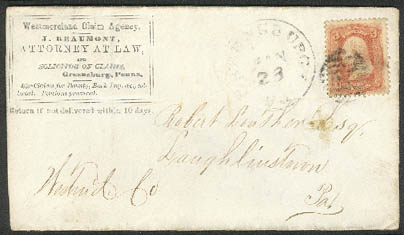 Westmoreland Claim Agency.
J. BEAUMONT,
ATTORNEY AT LAW,
AND
SOLICITOR OF CLAIMS,
Greensburg, Penna.
Claims for Bounty, Back Pay, &c., col-
lected. Pensions procured.
Return if not delivered within 10 days.
JAN
23
3 3
Robert Esq
Laughlinstown
Westmd. Co
Pa